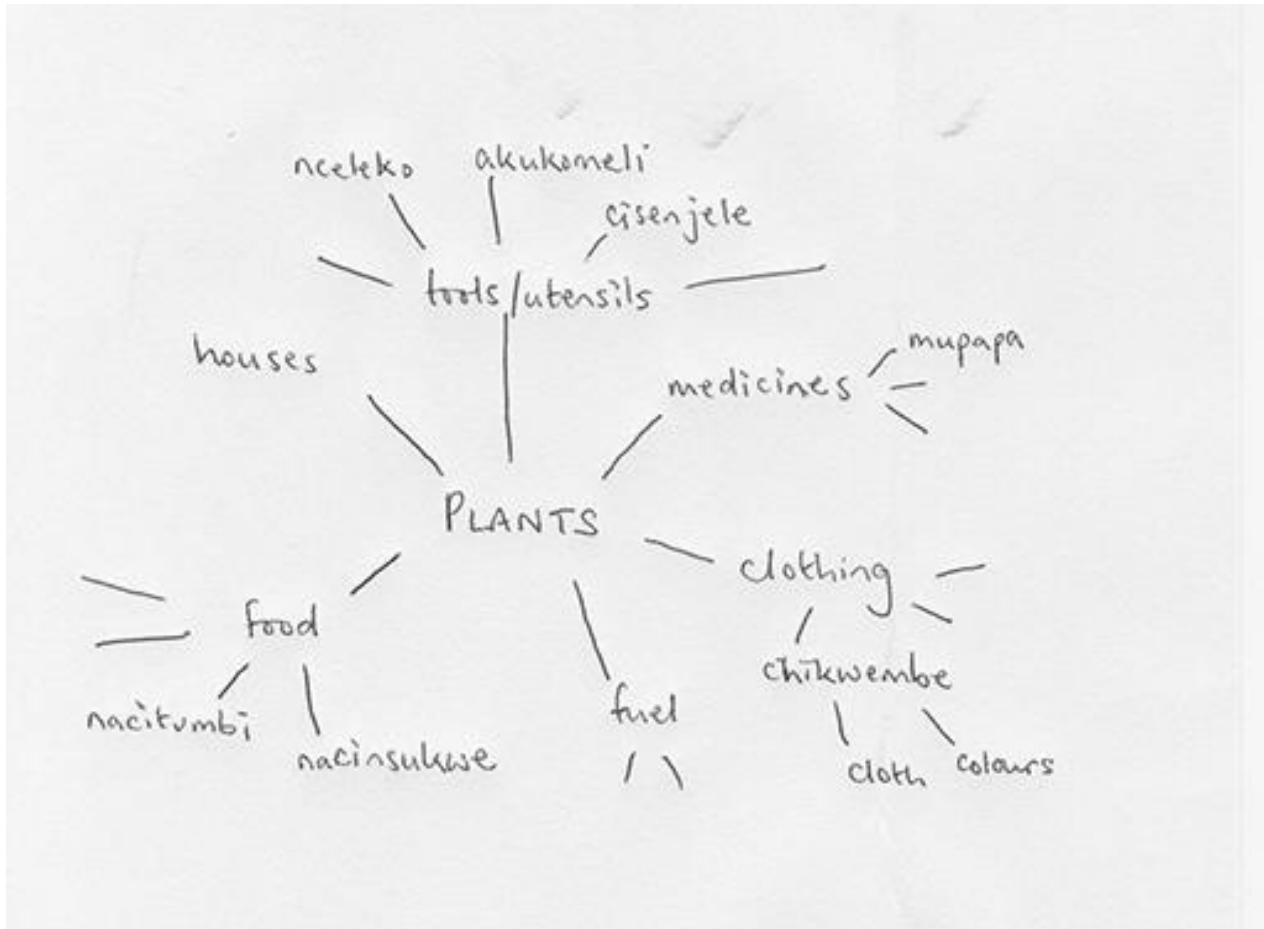 nceleko
akukomeli
cisenjele
tools/utensils
houses
mupapa
medicines
PLANTS
clothing
food
chikwembe
nacitumbi
fuel
nacinsukwe
cloth
colours